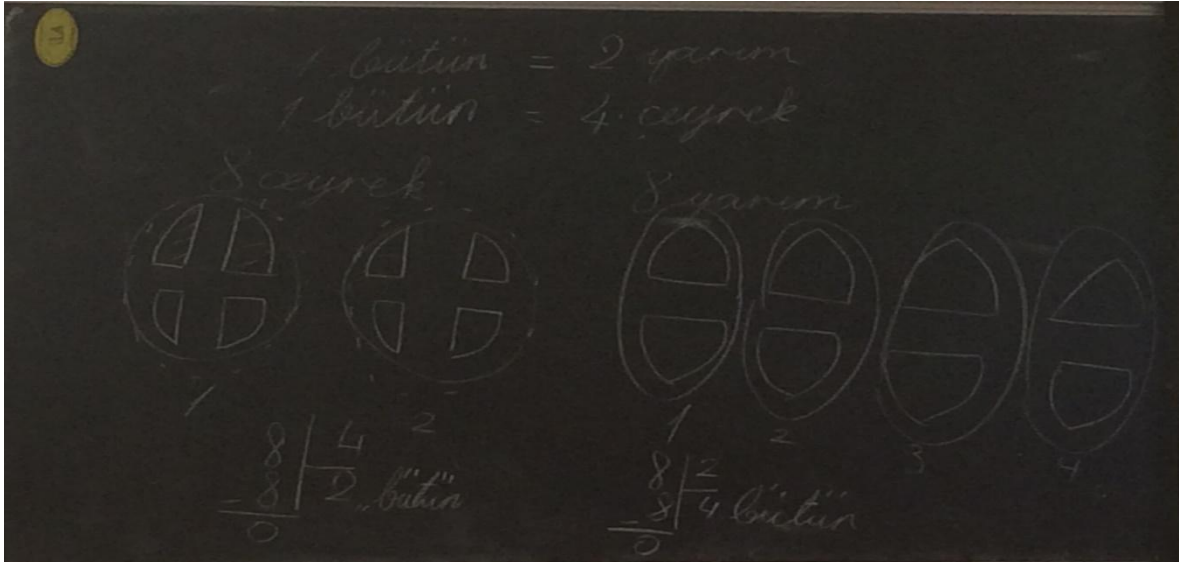 1 bütün = 2 yarım
1 bütün = 4 çeyrek
8 çeyrek
8 yarım
1 2
1 2 3 4
8 4
- 8 2 bütün
0
8 2
- 8 4 bütün
0